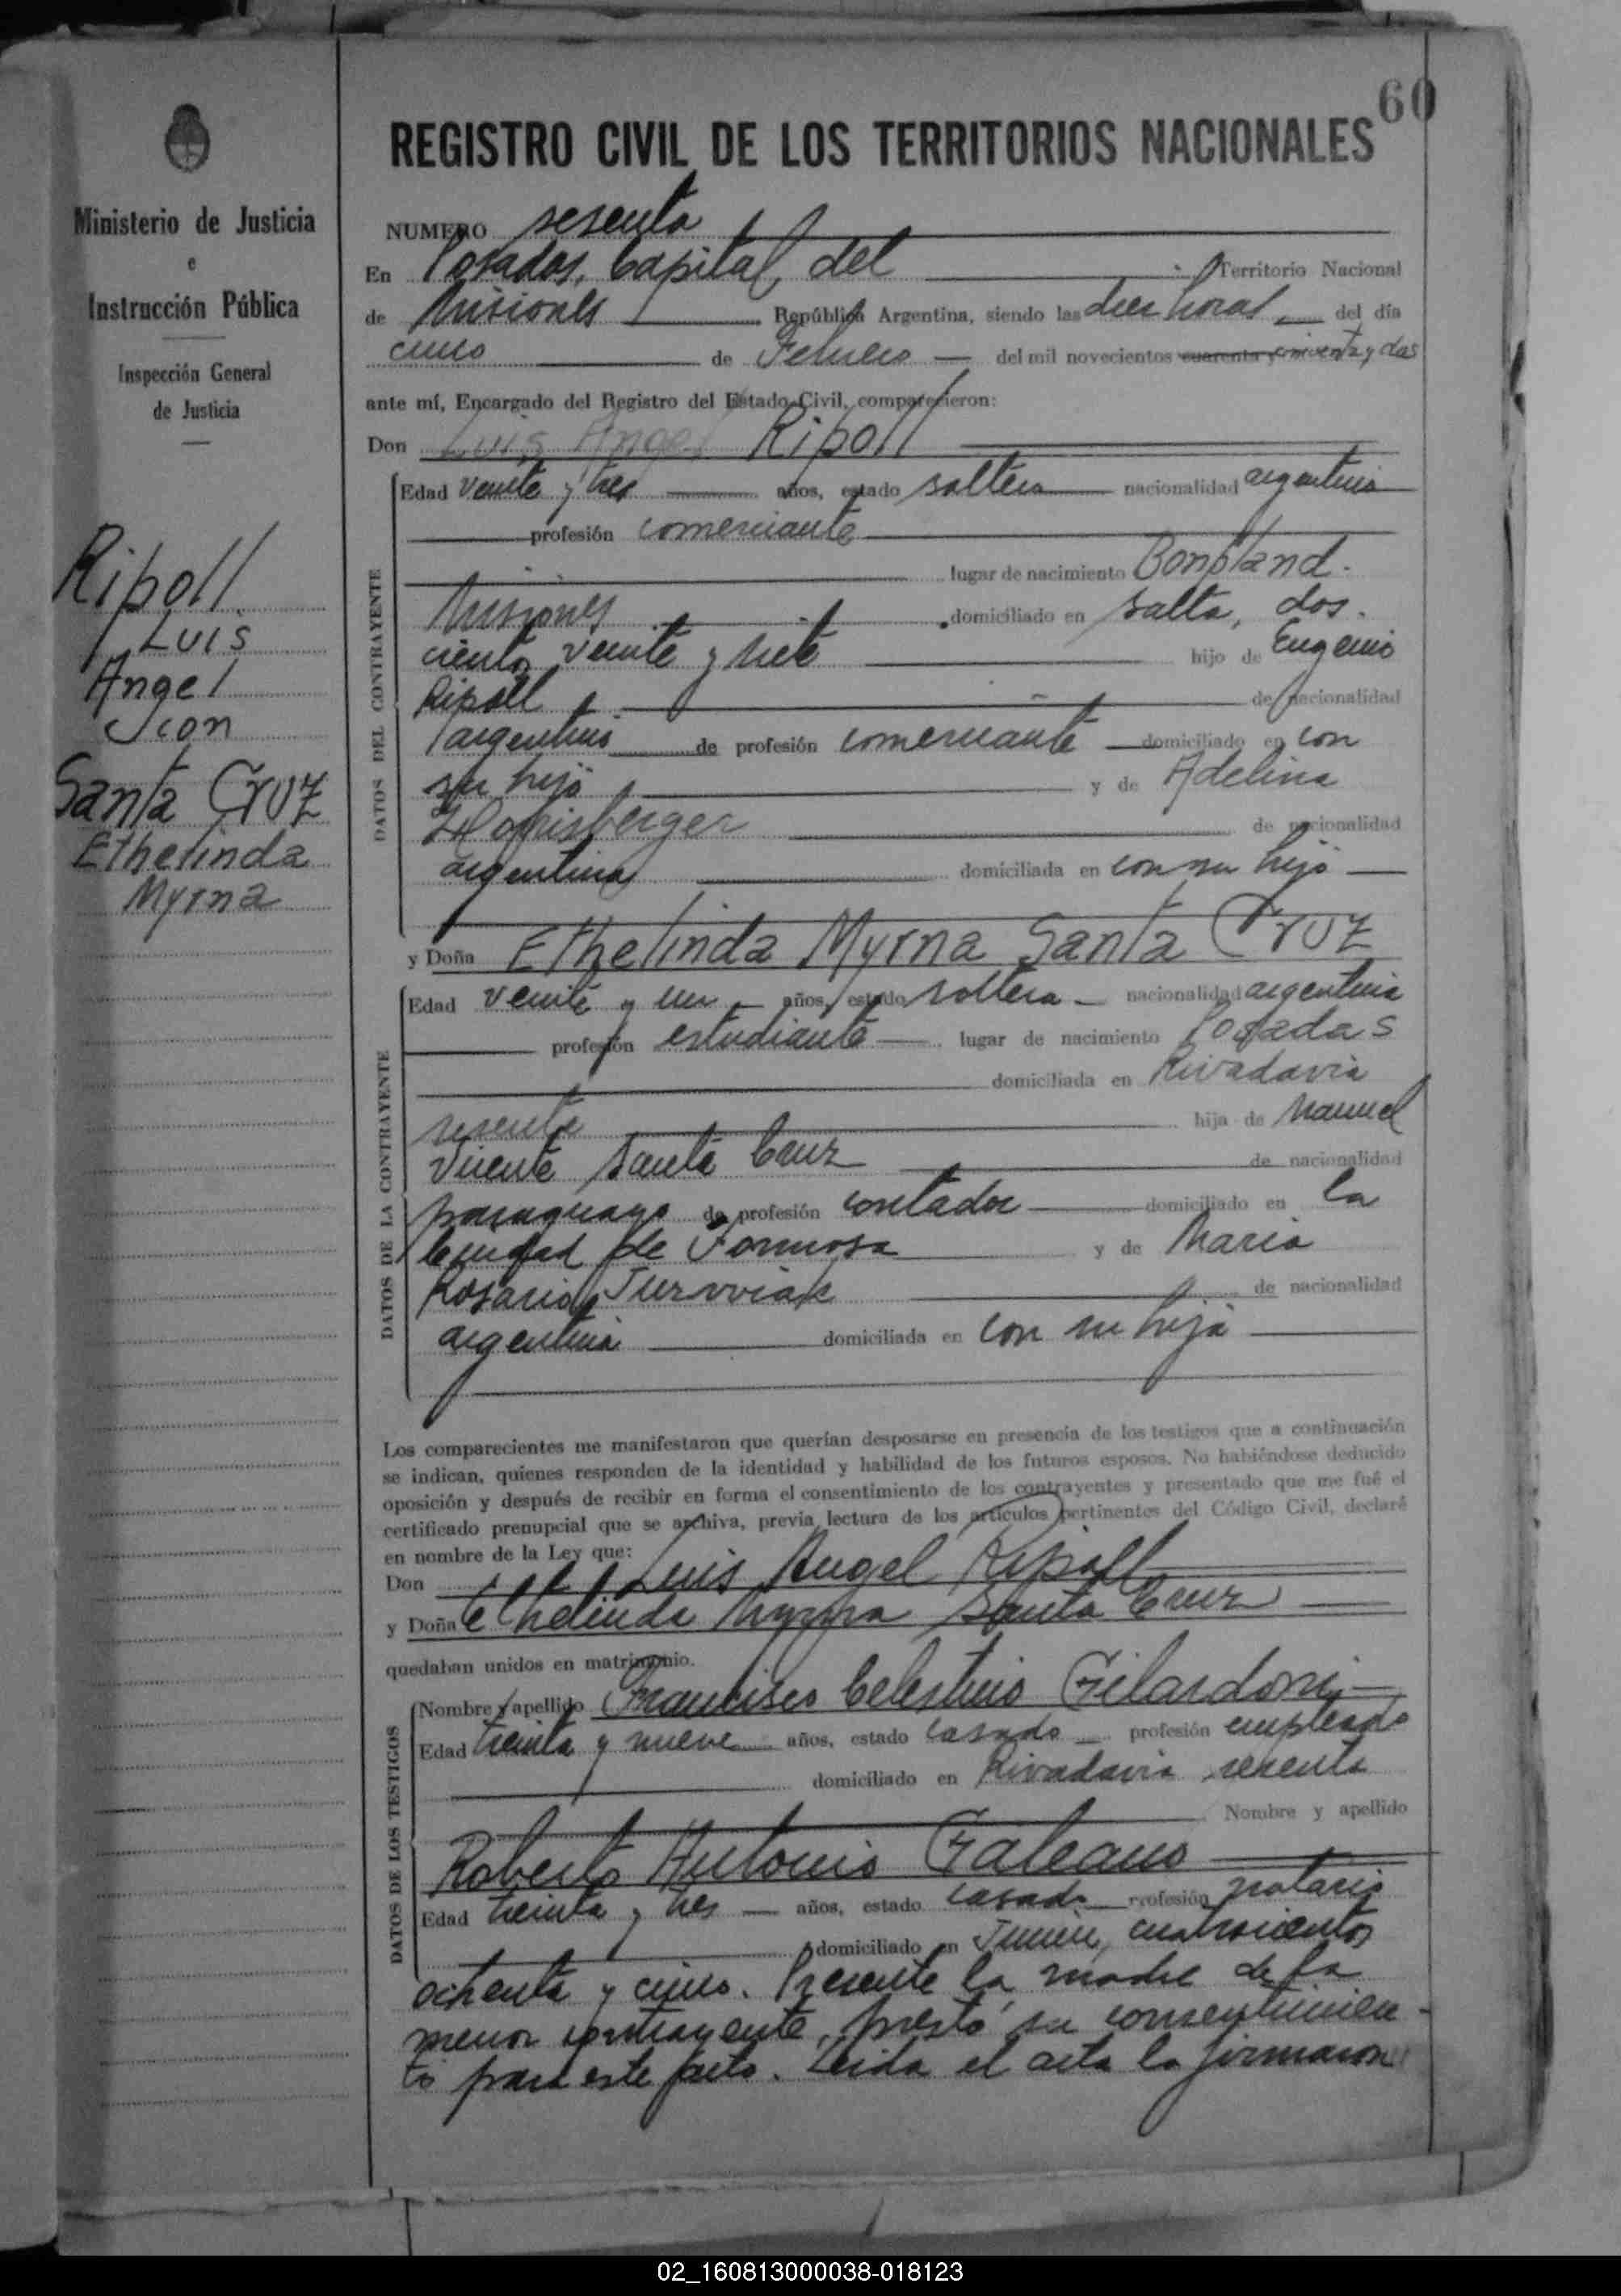 60
REGISTRO CIVIL DE LOS TERRITORIOS NACIONALES
Ministerio de Justicia
e
Instrucción Pública
Inspección General
de Justicia
Ripoll
Luis
Angel
con
Santa Cruz
Ethelinda
Myrna
NUMERO sesenta
En Posadas, Capital del Territorio Nacional
de Misiones República Argentina, siendo las diez horas del día
cinco de Febrero del mil novecientos cuarenta y cincuenta y dos
ante mí, Encargado del Registro del Estado Civil, comparecieron:
Don Luis Angel Ripoll
DATOS DEL CONTRAYENTE
Edad veinte y tres años, estado soltero nacionalidad argentina
profesión comerciante
lugar de nacimiento Bonpland.
Misiones domiciliado en Salta, dos.
cientos veinte y siete hijo de Eugenio
Ripoll de nacionalidad
argentino de profesión comerciante domiciliado en con
su hijo y de Adelina
de nacionalidad
argentina domiciliada en con su hijo
y Doña Ethelinda Myrna Santa Cruz
DATOS DE LA CONTRAYENTE
Edad veinte y un años, estado soltera nacionalidad argentina
profesión estudiante lugar de nacimiento Posadas
domiciliada en Rivadavia
sesenta hija de Manuel
Vicente Santa Cruz de nacionalidad
paraguayo de profesión contador domiciliado en la
Ciudad de Formosa y de María
Rosario de nacionalidad
argentina domiciliada en con su hija
Los comparecientes me manifestaron que querían desposarse en presencia de los testigos que a continuación
se indican, quienes responden de la identidad y habilidad de los futuros esposos. No habiéndose deducido
oposición y después de recibir en forma el consentimiento de los contrayentes y presentado que me fué el
certificado prenupcial que se archiva, previa lectura de los artículos pertinentes del Código Civil, declaré
en nombre de la Ley que:
Don Luis Angel Ripoll
y Doña Ethelinda Myrna Santa Cruz
quedaban unidos en matrimonio.
DATOS DE LOS TESTIGOS
Nombre y apellido Francisco Celestino Gilardoni
Edad treinta y nueve años, estado casado profesión empleado
domiciliado en Rivadavia sesenta
Nombre y apellido
Roberto Antonio Galeano
Edad treinta y tres años, estado casado profesión notario
domiciliado en Junín, cuatrocientos
ochenta y cinco. Presente la madre de la
menor contrayente, prestó su consentimien-
to para este acto. Leída el acta la firmaron
02_160813000038-018123